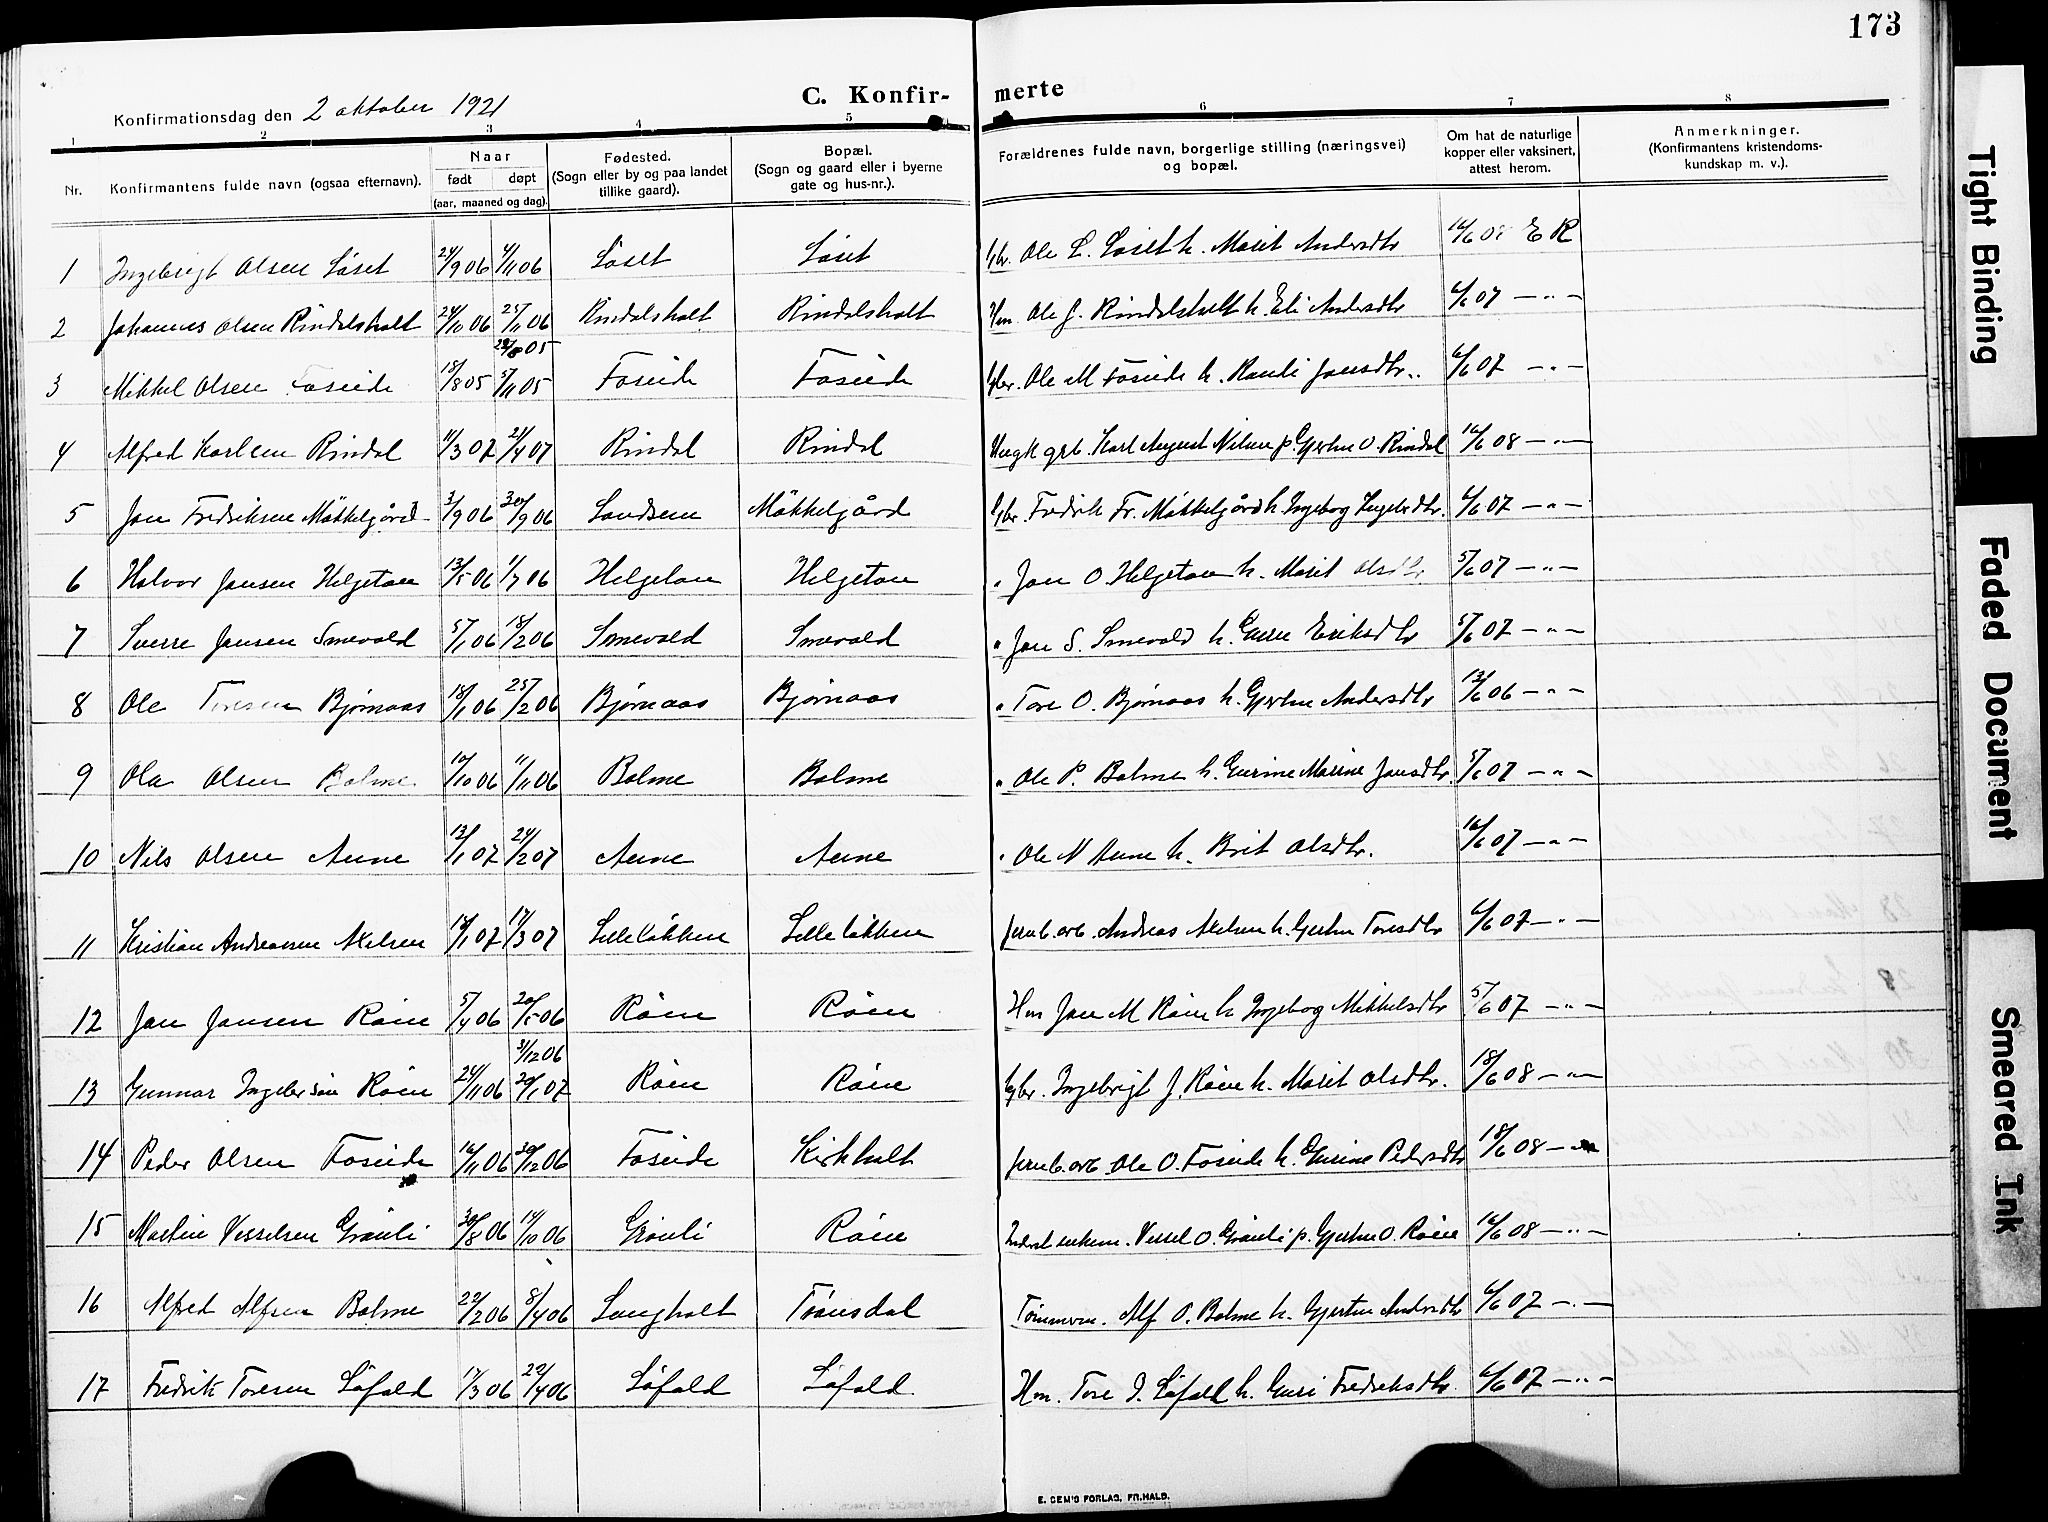 173
C. Konfirmerte
Konfirmationsdag den 2 oktober 1921
1 2 3 4 5 6 7 8
Nr.
Konfirmantens fulde navn (ogsaa efternavn).
Naar
født døpt
(aar, maaned og dag).
Fødested.
(Sogn eller by og paa landet
tillike gaard).
Bopæl.
(Sogn og gaard eller i byerne
gate og hus-nr.).
Forældrenes fulde navn, borgerlige stilling (næringsvei)
og bopæl.
Om hat de naturlige
kopper eller vaksinert,
attest herom.
Anmerkninger.
(Konfirmantens kristendoms-
kundskap m. v.).
1 Ingebrigt Olsen Løset 24/9 06 4/11 06 Løset Løset Gbr. Ole L. Løset h. Marit Andersdtr 16/6 08 E R
2 Johannes Olsen Rindalsholt 24/10 06 25/11 06 Rindalsholt Rindalsholt Hm. Ole J. Rindalsholt h. Eli Andersdtr 6/6 07 — " —
29/8 05
3 Mikkel Olsen Foseide 15/8 05 5/11 05 Foseide Foseide Gbr. Ole M Foseide h. Randi Jonsdtr. 6/6 07 — " —
4 Alfred Karlsen Rindal 11/3 07 21/4 07 Rindal Rindal Karl August Nilsen p. Gjertru O. Rindal 16/6 08 — " —
5 Jon Fredriksen Møkkelgård 3/9 06 30/9 06 Sandsem Møkkelgård Gbr. Fredrik Fr. Møkkelgård h. Ingebog Ingebrdtr. 6/6 07 — " —
6 Halvor Jonsen Helgeton 13/5 06 1/7 06 Helgeton Helgeton " Jon O Helgeton h. Marit Olsdtr 5/6 07 — " —
7 Sverre Jonsen Smevold 5/1 06 18/2 06 Smevold Smevold " Jon S. Smevold h. Guru Eriksdtr 5/6 07 — " —
8 Ole Toresen Bjørnaas 18/1 06 25/2 06 Bjørnaas Bjørnaas " Tore O. Bjørnaas h. Gjertru Andersdtr 13/6 06 — " —
9 Ola Olsen Bolme 10/10 06 11/11 06 Bolme Bolme " Ole P. Bolme h. Gurine Marine Jonsdtr. 5/6 07 — " —
10 Nils Olsen Aune 13/1 07 24/2 07 Aune Aune " Ole N Aune h. Brit Olsdtr. 16/6 07 — " —
11 Kristian Andreassen Akelsen 17/3 07 Lilleløkken Lilleløkken Jernb. arb. Andreas Akelsen h. Gjertru Toresdtr 6/6 07 — " —
12 Jon Jonsen Røen 5/4 06 20/5 06 Røen Røen Hm Jon M Røen h Ingebog Mikkelsdtr 5/6 07 — " —
31/12 06
13 Gunnar Ingebr søn Røen 24/11 06 20/1 07 Røen Røen Gbr. Ingebrigt J. Røen h. Marit Olsdtr. 18/6 08 — " —
14 Peder Olsen Foseide 16/11 06 30/12 06 Foseide Kirkholt Jernb. arb. Ole O. Foseide h. Gurine Pedersdtr 18/6 08 — " —
15 Martin Vesselsen Grønli 30/8 06 14/10 06 Grønli Røen Vessel O. Grønli p. Gjertru O. Røen 16/6 08 — " —
16 Alfred Alfsen Bolme 22/2 06 8/4 06 Langholt Trønsdal Tømmerm. Alf O. Bolme h. Gjertru Andersdtr 6/6 07 — " —
17 Fredrik Toresen Løfald 17/3 06 22/4 06 Løfald Løfald Hm. Tore I. Løfald h. Guri Fredriksdtr. 6/6 07 — " —
E. SEM'S FORLAG, FR.HALD.
Tight Binding
Faded Document
Smeared Ink